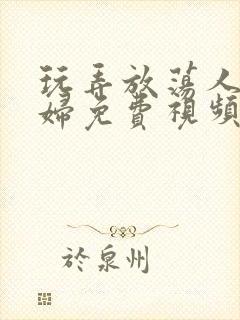 玩弄放蕩人
婦免費視頻
於泉州